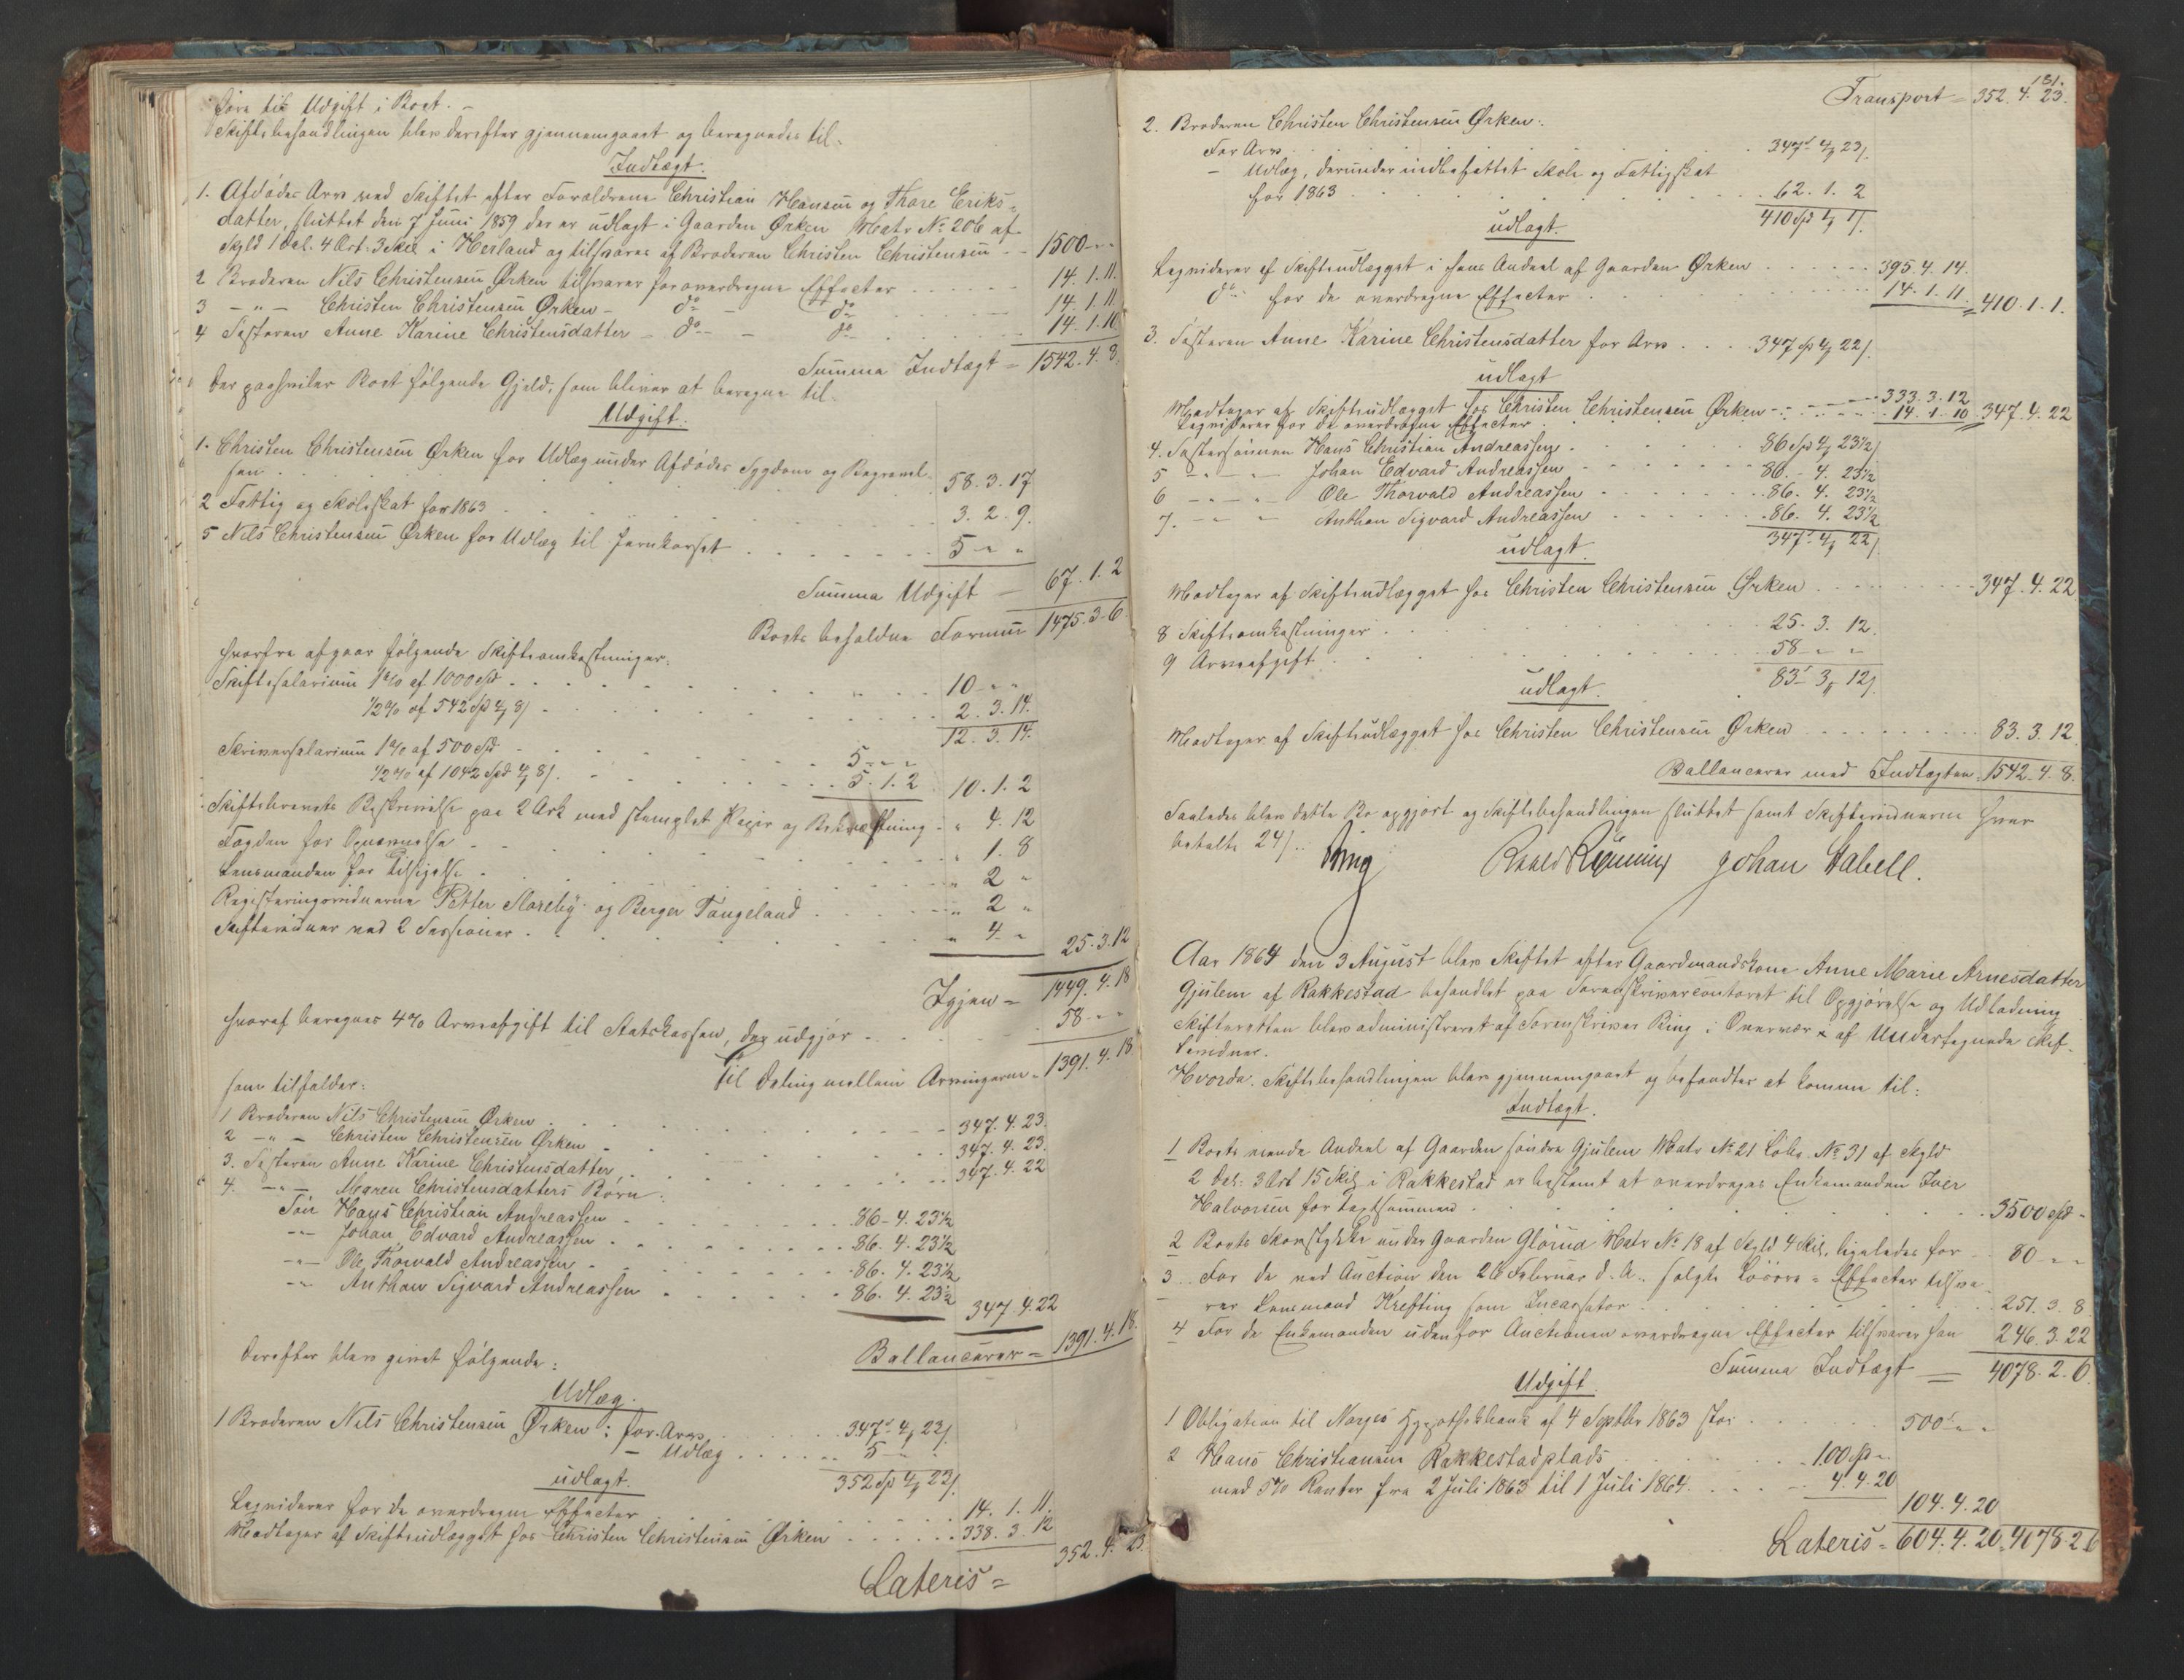 føre til Udgift i Boet. –
Skiftebehandlingen blev derefter gjennemgaaet og beregnedes til:
Indtægt.
1. Afdødes Arv ved Skiftet efter Forældrene Christian Hansen og Thore Eriks-
datter, sluttet den 7 Juni 1859 der er udlagt i Gaarden Ørken Matr No 206 af
Skyld 1 Dal. 4 Ort. 3 Skil i Herland og tilsvares af Broderen Christen Christensen – 1500 " "
2 Broderen Nils Christensen Ørken tilsvarer for overdragne Effecter 14. 1. 11.
3 – " – Christen Christensen Ørken – do – do 14. 1. 11.
4 Søsteren Anne Karine Christensdatter – do – do 14. 1. 10
Summa Indtægt = 1542. 4. 8.
Der paahviler Boet følgende Gjæld, som bliver at beregne til
Udgift.
1. Christen Christensen Ørken for Udlæg under Afdødes Sygdom og Begravel-
sen 58. 3. 17
2 Fattig og Skoleskat for 1863 3. 2. 9.
5 Nils Christensen Ørken for Udlæg til Jernkorset 5 " "
Summa Udgift – 67. 1. 2
Boets beholdne Formue 1475. 3. 6
hvorfra afgaar følgende Skifteomkostninger:
Skiftesalarium 1% af 1000 Spd 10 " "
1/2% af 542 Spd 4 8 2. 3. 14.
12. 3. 14.
Skriversalarium 1% af 500 Spd 5 " "
1/2% af 1042 Spd 4 8 5. 1. 2 10. 1. 2
Skiftebrevets Beskrivelse paa 2 Ark med stemplet Papir og Bekræftning " 4. 12
Fogden for Opnævnelse " 1. 8
Lensmanden for Tilsigelse " 2 "
Registreringsvidnerne Petter Sloreby og Berger Tangeland " 2 "
Skiftevidner ved 2 Sessioner " 4 " 25. 3. 12
Igjen = 1449. 4. 18
hvoraf beregnes 4% Arveafgift til Statskassen, der udgjør 58 " "
Til Deling mellem Arvingerne = 1391. 4. 18
som tilfalder:
1 Broderen Nils Christensen Ørken 347. 4. 23
2 – " – Christen Christensen Ørken 347. 4. 23.
3. Søsteren Anne Karine Christensdatter 347. 4. 22
4. – " – Maren Christensdatters Børn:
Søn Hans Christian Andreassen 86. 4. 23 1/2
– " – Johan Edvard Andreassen 86. 4. 23 1/2
– " – Ole Thorvald Andreassen 86. 4. 23 1/2
– " – Anthon Sigvard Andreassen 86. 4. 23 1/2 347. 4. 22
Ballancerer = 1391. 4. 18.
Derefter blev givet følgende:
Udlæg.
1 Broderen Nils Christensen Ørken: for Arv 347 4 23
– Udlæg 5 " "
352 Sp 4 23
udlagt.
Liqviderer for de overdragne Effecter 14. 1. 11.
Modtager af Skifteudlægget hos Christen Christensen Ørken 338. 3. 12 352. 4. 23.
Lateris =
131.
Transport = 352. 4. 23.
2. Broderen Christen Christensen Ørken:
For Arv 347 4 23
– Udlæg, derunder indbefattet Skole og Fattigskat
for 1863 62. 1. 2
410 Sp 1 1
udlagt.
Liqviderer af Skifteudlægget i hans Andeel af Gaarden Ørken 395. 4. 14.
do for de overdragne Effecter 14. 1. 11. = 410. 1. 1.
3. Søsteren Anne Karine Christensdatter for Arv 347 Sp 4 22
udlagt
Modtager af Skifteudlægget hos Christen Christensen Ørken 333. 3. 12
Liqviderer for de overdragne Effecter 14. 1. 10 = 347. 4. 22
4. Søstersønnen Hans Christian Andreassen 86 Spd 4 23 1/2
5 – " – Johan Edvard Andreassen 86. 4. 23 1/2
6 – " – Ole Thorvald Andreassen 86. 4. 23 1/2
7. – " – Anthon Sigvard Andreassen 86. 4. 23 1/2
347 4 22
udlagt.
Modtager af Skifteudlægget hos Christen Christensen Ørken 347. 4. 22
8 Skifteomkostninger 25. 3. 12.
9 Arveafgift 58 " "
83 3 12
udlagt.
Modtager af Skifteudlægget hos Christen Christensen Ørken 83. 3. 12
Ballancerer med Indtægten = 1542. 4. 8.
Saaledes blev dette Bo opgjort og Skiftebehandlingen sluttet samt Skiftevidnerne hver
betalte 24.
Ring Johan Labell.
Aar 1864 den 3 August blev Skiftet efter Gaardmandskone Anne Marie Arnesdatter
Gjulem af Rakkestad behandlet paa Sorenskrivercontoret til Opgjørelse og Udlodning
Skifteretten blev administreret af Sorenskriver Ring i Overvær af Undertegnede Skif-
tevidner.
Hvorda. Skiftebehandlingen blev gjennemgaaet og befandtes at komme til:
Indtægt.
1 Boets eiende Andeel af Gaarden søndre Gjulem Matr No 21 Løbe No 31 af Skyld
2 Dal. 3 Ort 15 Skil i Rakkestad er bestemt at overdrages Enkemanden Iver
Halvorsen for Taxtsummen 3500 Spd "
2 Boets Skovstykke under Gaarden Glørud Matr No 18 af Skyld 4 Skil. ligeledes for 80 " "
3 For de ved Auction den 26 Februar d. A. solgte Løsøre = Effecter tilsva-
rer Lensmand Krefting som Incassator 251. 3. 8
4 For de Enkemanden udenfor Auctionen overdragne Effecter tilsvarer han 246. 3. 22
Summa Indtægt = 4078. 2. 6.
Udgift.
1 Obligation til Norges Hypothekbank af 4 Septbr 1863 stor 500 " "
2 Hans Christiansen Rakkestadplads 100 Sp "
med 5% Renter fra 2 Juli 1863 til 1 Juli 1864. 4. 4. 20
104. 4. 20
Lateris = 604. 4. 20 4078. 2. 6